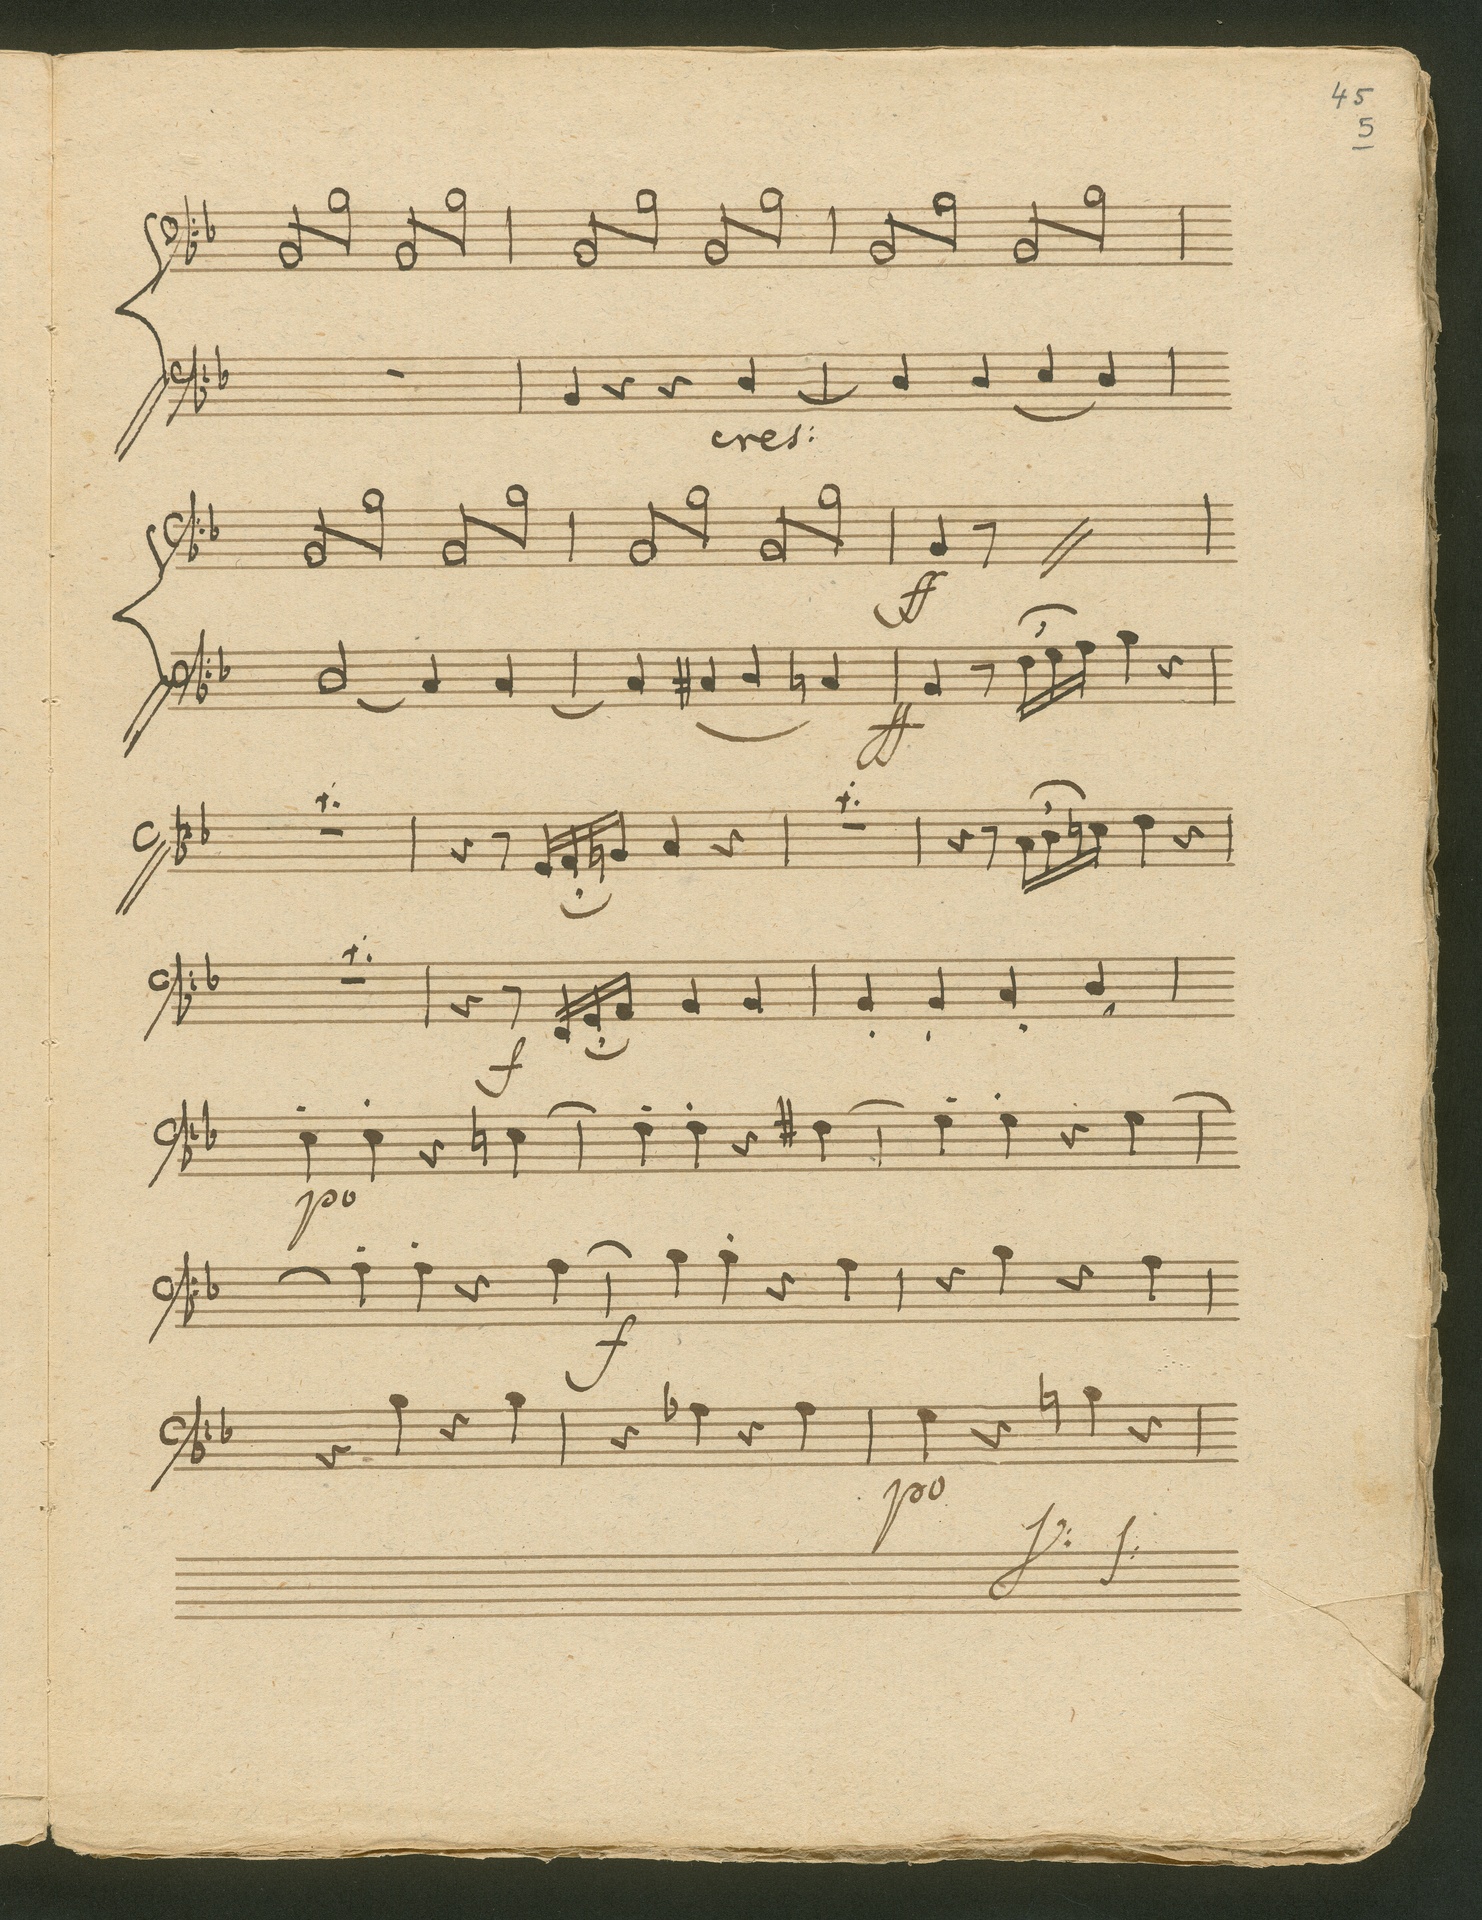 45
5
cres:
ff
ff
f
po
f
po
V: S: